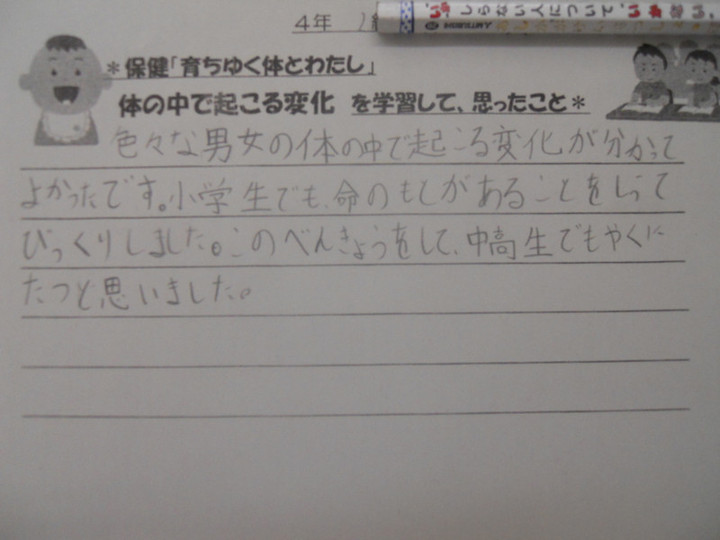 4年 1組
しらない人について、いかない
＊保健「育ちゆく体とわたし」
体の中で起こる変化 を学習して、思ったこと＊
色々な男女の体の中で起こる変化が分かって
よかったです。小学生でも、命のもとがあることをしって
びっくりしました。このべんきょうをして、中高生でもやくに
たつと思いました。